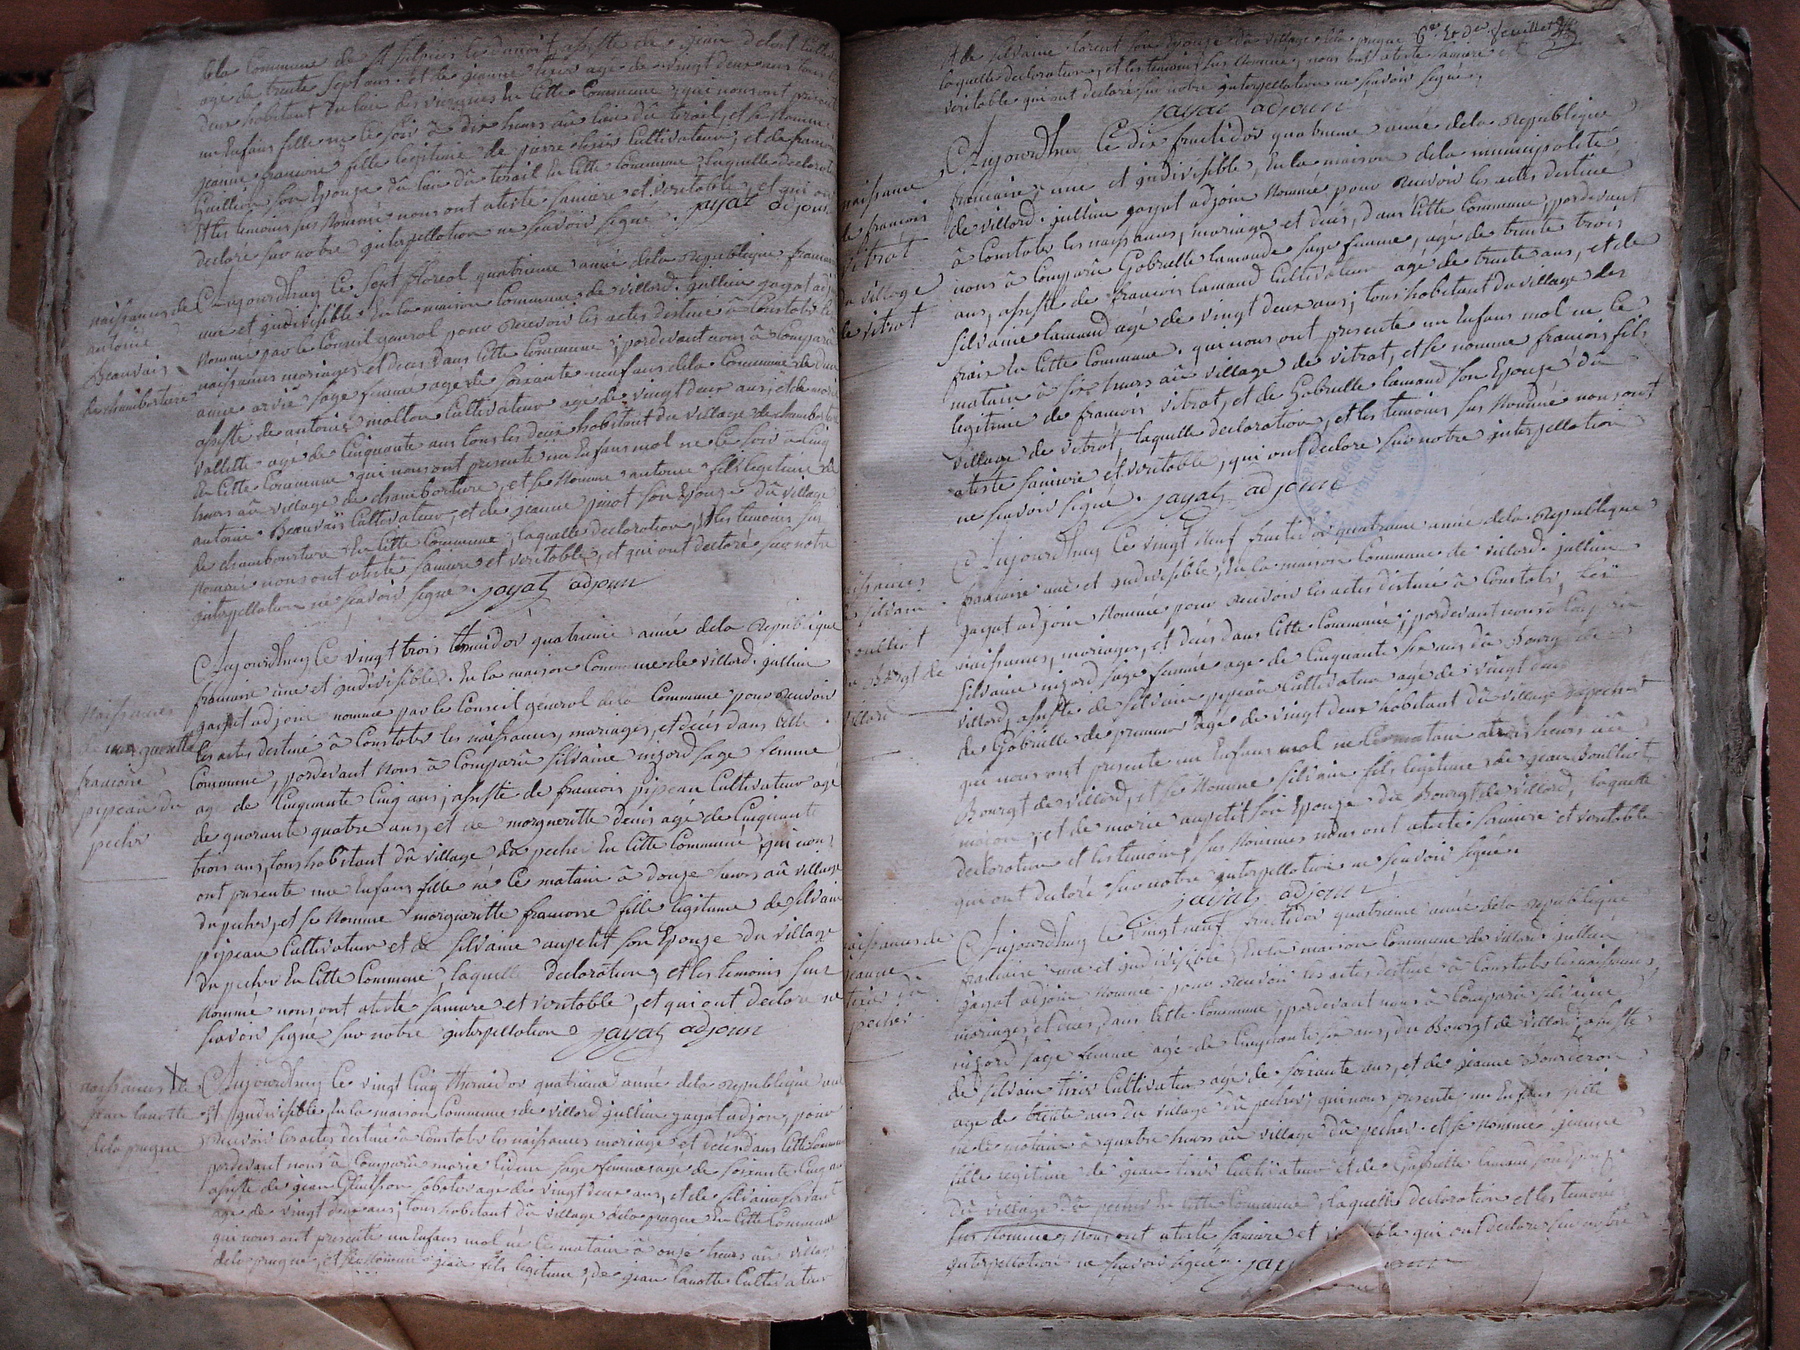 dela Commune de St Sulpice le donoit assiste de jean delort Cultiva
age de trente sept ans et de jeanne tixier age de vingt deux ans tous les
deux habitant du lieu des vergnes En Cette Commune qui nous ont present
un Enfans fille ne le soir à dix heurs au lieu du terail, et se nomme
jeanne francoise fille legitime de pierre tixier Cultivateur, et de francoi
son Epouze du lieu du terail En Cette Commune laquelle declarat
Et les temoins sus Nommé nous ont ateste sainiere et veritable, et qui on
declaré sur notre ynterpellation ne scavoir signé. jayat adjoin
naissances de
antoine
Beauvais
de chamborture
Aujourdhuy Ce sept floreal quatrieme année dela Republique francai
une et yndivisibles En la maison Commune de villard. jullien gayat adj
Nommé par le Conseil general pour Recevoir les actes destiné à Constater les
naissances mariages et deces, dans Cette Commune, pardevant nous à Comparu
anne arvié sage femme age de soixante neuf ans dela Commune de dun
assiste de antoine Cultivateur age de vingt deux ans, et de
vallette agé de Cinquante ans tous les deux habitant du village de chambor
En Cette Commune qui nous ont presente un Enfans mal ne le soir à Cinq
heurs au village de chamborture, et se Nomme antoine fils legitime de
antoine Beauvais Cultivateur, et de jeanne pinot son Epouze du village
de chamborture En Cette Commune, laquelle declaration, Et les temoins sus
Nommé nous ont ateste sainiere et veritable, et qui ont declaré sur notre
ynterpellation ne scavoir signé. jayat adjoin
Naissances
de marguerite
francoise
pipeau du
pecher
Aujourdhuy Ce vingt trois thermidor quatrieme année dela Republique
francaise une et yndivisibles. En la maison Commune de villard. jullien
gayat adjoin nomme par le Conseil général dela Commune pour Recevoir
les actes destiné à Constater les naissances, mariages, et deces dans Cette
Commune, pardevant Nous à Comparu silvaine nigard sage femme
age de Cinquante Cinq ans, assiste de francois pipeau Cultivateur age
de quarante quatre ans, et de margueritte denis agé de Cinquante
trois ans, tous habitant du village du pecher En Cette Commune, qui nous
ont presente une Enfans fille né Ce matain à douze heurs au village
du pecher, et se Nomme margueritte francoise fille legitime de silvain
pipeau Cultivateur et de silvaine aupetit son Epouze du village
du pecher En Cette Commune, laquelle declaration, et les temoins sus
nommé nous ont ateste sainiere et veritable, et qui ont declare ne
scavoir signé sur notre ynterpellation jayat adjoin
naissances de
jean lanotte
dela prugne
Aujourdhuy Ce vingt Cinq thermidor quatrieme année dela Republique une
Et yndivisible En la maison Commune de villard jullien gayat adjoin, pour
Recevoir les actes destiné à Constater les naissances mariage et deces dans Cette Commune
pardevant nous à Comparu marie sage femme agé de soixante Cinq an
assiste de jean sabotier age de vingt deux ans, et de silvain
age de vingt deux ans, tous habitant du village dela prugne En Cette Commune
qui nous ont presente un Enfans mal né Ce matain à onze heurs au village
dela prugne, et se Nomme jean fils legitime, de jean lanotte Cultivateur
6e Et der feuillet
Et de silvaine lorent son Epouze du village dela prugne
laquelle declaration, et les temoins sus Nommé, nous ont ateste sainiere et
veritable qui ont declaré sur notre ynterpellation ne scavoir signé,
jayat adjoin
naissance
de francois
vitrat
du village
de vitrat
Aujourdhuy Ce dix fructidor quatrieme anne dela Republique
francaise, une et yndivisible, En la maison dela municipalité
de villard. jullien gayat adjoin Nommée pour Recevoir les actes destiné
à Constater les naissances, mariage et deces, dans Cette Commune, pardevant
nous à Comparu Gabrielle lamaude sage femme, agé de trente trois
ans, assiste de francois lamaud Cultivateur agé de trente ans, et de
silvaine lamaud agé de vingt deux ans, tous habitant du village des
frais En Cette Commune. qui nous ont presente un Enfans mal ne le
matain à six heurs au village de vitrat, et se nomme francois fils
legitime de francois vitrat, et de Gabrielle lamaud son Epouze du
village de vitrat, laquelle declaration, et les temoins sus Nommé nous ont
ateste sainiere et veritable, qui ont declare sur notre ynterpellation
ne scavoir signé. jayat adjoin
naissances
de silvain
Boulliot
du Bourgt de
villard
Aujourdhuy Ce vingt neuf fructidor quatrieme année dela Republique
francaise une et yndivisible, En la maison Commune de villard. jullien
gayat adjoin Nommé pour Recevoir les actes destiné à Constater, les
naissances, mariages, et deces dans Cette Commune, pardevant nous à Comparu
silvaine nigard sage femme age de Cinquante six ans du Bourgt de
villard, assiste de silvain pipeau Cultivateur agé de vingt deux
de Gabrielle de age de vingt deux habitant du village
qui nous ont presente un Enfans mal ne Ce matain à trois heurs au
Bourgt de villard, et se Nomme silvain fils legitime de jean Boulliot
maçon, et de marie aupetit son Epouze du Bourgt de villard, laquelle
declaration et les temoins sus Nommés nous ont ateste sainiere et veritable
qui ont declaré sur notre ynterpellation ne scavoir signé.
jayat adjoin
naissances de
jeanne
tixier du
pecher
Aujourdhuy Ce vingt neuf fructidor quatrieme anné dela Republique
francaise une et yndivisible, En la maison Commune de villard jullien
gayat adjoin Nomme pour Recevoir les actes destiné à Constater les naissances,
mariages, et deces, dans Cette Commune, pardevant nous à Comparu silvaine
nigard sage femme agé de Cinquante six ans, du Bourgt de villard, assiste
de silvain tixier Cultivateur agé de soixante ans, et de jeanne
age de trente ans du village du pecher, qui nous presente un Enfans fille
ne le matain à quatre heurs au village du pecher. et se Nomme, jeanne
fille legitime de jean tixier Cultivateur et de Gabrielle lamaud son Epouze
du village du pecher En Cette Commune, laquelle declaration et les temoins
sus Nomme, Nous ont ateste sainiere et veritable qui ont declare sur notre
ynterpellation ne scavoir signé.